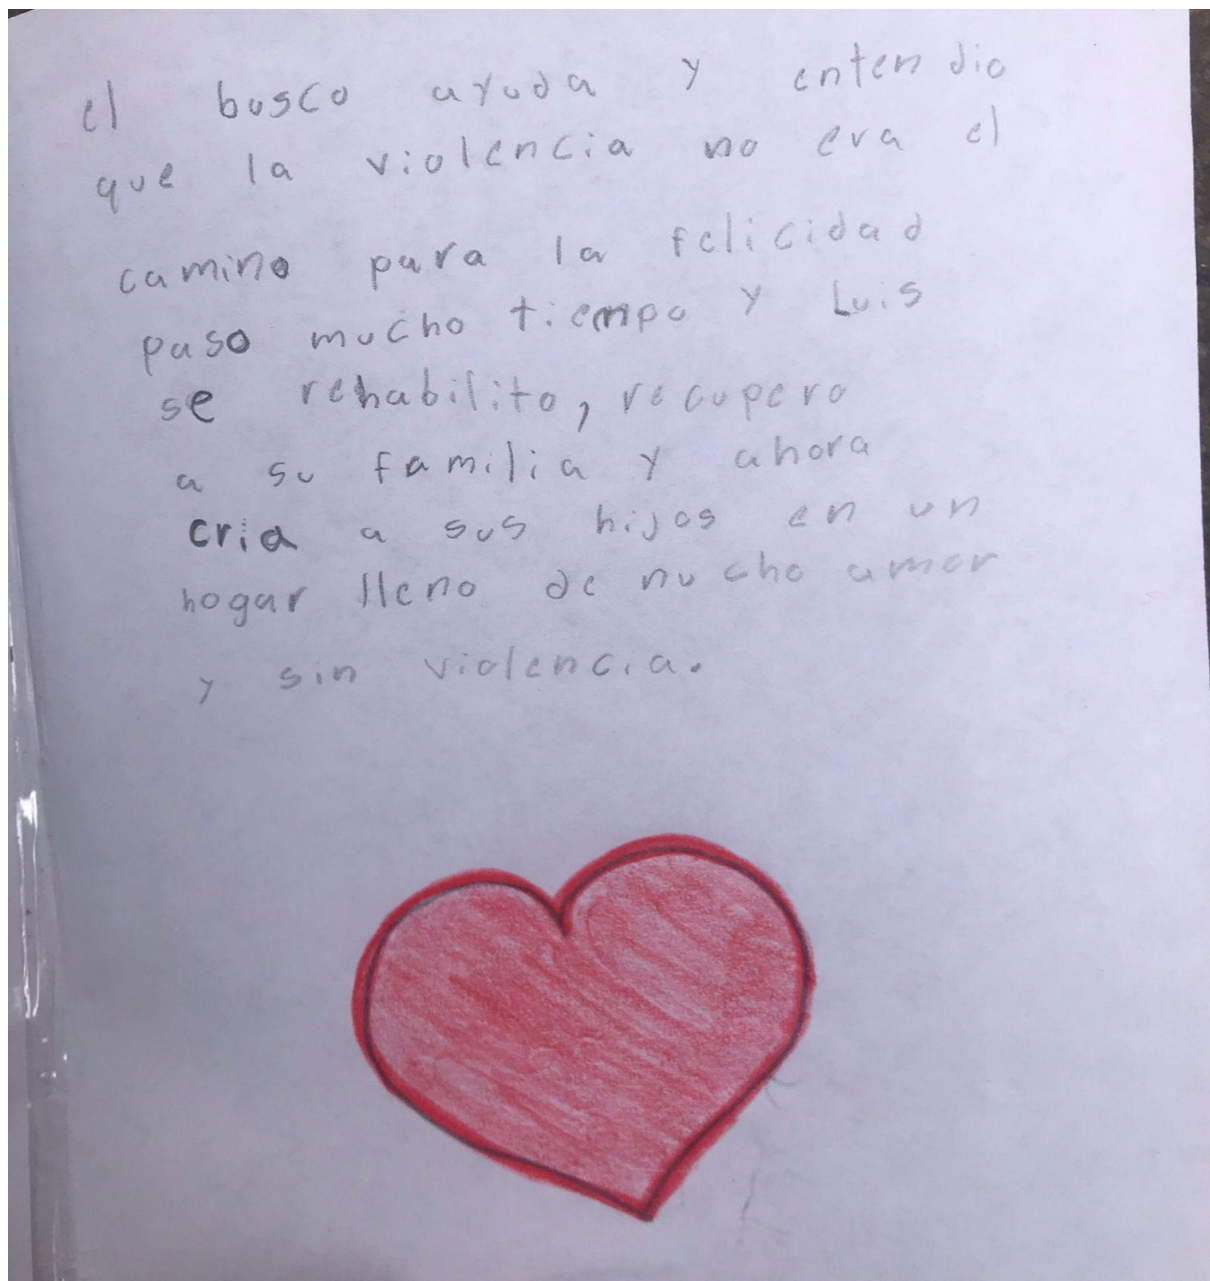 el busco ayuda y entendio
que la violencia no era el
camino para la felicidad
paso mucho tiempo y Luis
se rehabilito, recupero
a su familia y ahora
cria a sus hijos en un
hogar lleno de mucho amor
y sin violencia.